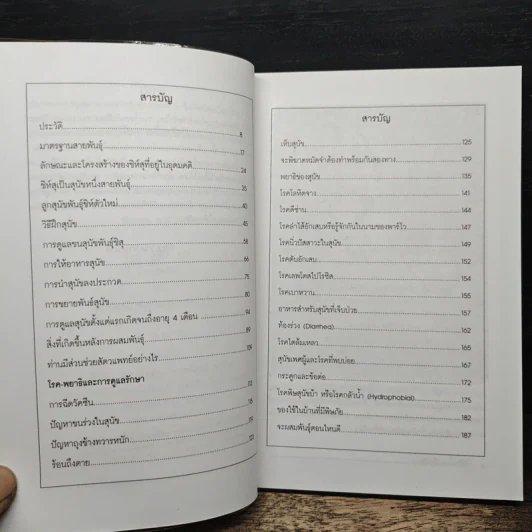 สารบัญ
ประวัติ 8
มาตรฐานสายพันธุ์ 17
ลักษณะและโครงสร้างของชิห์สุที่อยู่ในอุดมคติ 24
ชิห์สุเป็นสุนัขหนึ่งสายพันธุ์ 35
ลูกสุนัขพันธุ์ชิห์ตัวใหม่ 40
วิธีฝึกสุนัข 45
การดูแลขนสุนัขพันธุ์ชิสุ 58
การให้อาหารสุนัข 66
การนำสุนัขลงประกวด 75
การขยายพันธ์สุนัข 80
การดูแลสุนัขตั้งแต่แรกเกิดจนถึงอายุ 4 เดือน 94
สิ่งที่เกิดขึ้นหลังการผสมพันธุ์ 89
ท่านมีส่วนช่วยสัตวแพทย์อย่างไร 109
โรค-พยาธิและการดูแลรักษา
การฉีดวัคซีน
ปัญหาขนร่วงในสุนัข
ปัญหาถุงข้างทวารหนัก
ร้อนถึงตาย
สารบัญ
เห็บสุนัข 125
จะพิฆาตหมัดจำต้องทำพร้อมกันสองทาง 129
พยาธิของสุนัข 135
โรคโลหิตจาง 141
โรคดีซ่าน 144
โรคลำไส้อักเสบหรือรู้จักกันในนามของพาร์โว 147
โรคนิ่วปัสสาวะในสุนัข 149
โรคตับอักเสบ 152
โรคเลพโตสไปโรซิส 154
โรคเบาหวาน 155
อาหารสำหรับสุนัขที่เจ็บป่วย 157
ท้องร่วง (Diarrhea) 162
โรคไตล้มเหลว 165
สุนัขเพศผู้และโรคที่พบบ่อย 167
กระดูกและข้อต่อ 172
โรคพิษสุนัขบ้า หรือโรคกลัวน้ำ (Hydrophobia) 175
ของใช้ในบ้านที่มีพิษภัย 182
จะผสมพันธุ์ตอนไหนดี 187